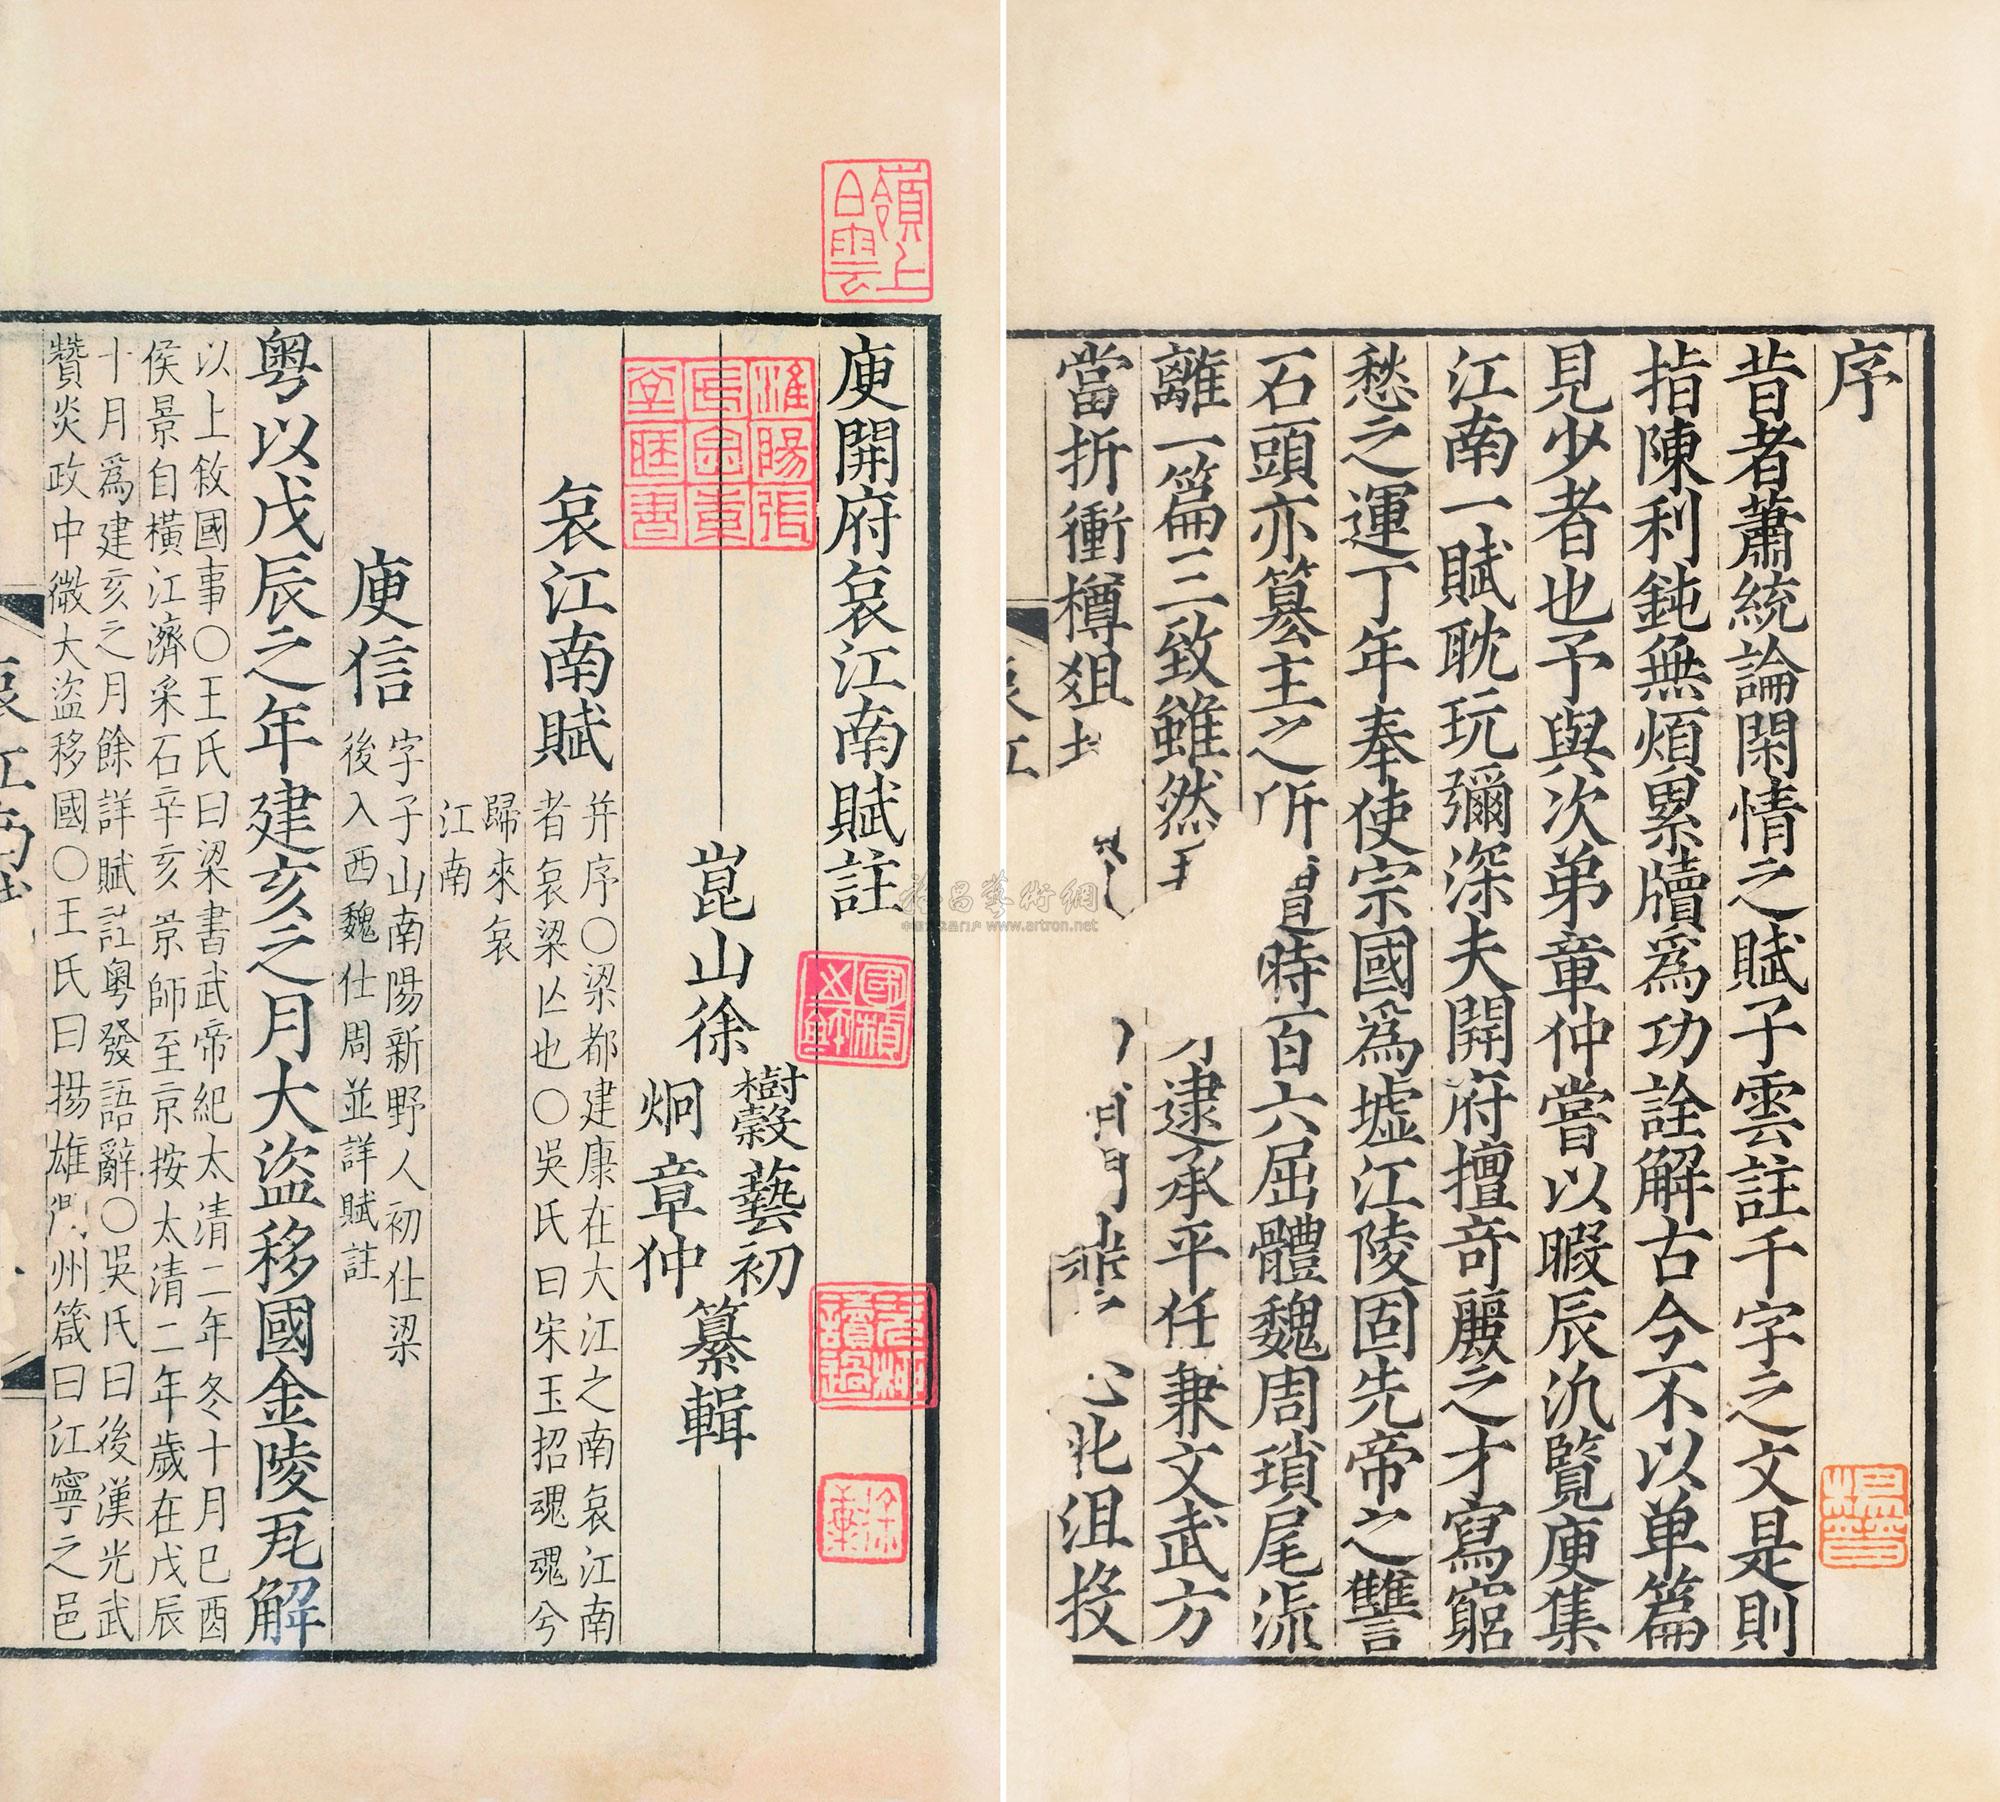 序
昔者蕭統論閑情之賦子雲註千字之文是則
指陳利鈍無煩累牘爲功詮解古今不以单篇
見少者也予與次弟章仲嘗以暇辰汎覽庾集
江南一賦耽玩彌深夫開府擅奇麗之才寫窮
愁之運丁年奉使宗國爲墟江陵固先帝之讐
石頭亦篡主之所 時百六屈體魏周瑣尾流
離一篇三致雖然 逮承平任兼文武方
當折衝樽俎 北沮投
庾開府哀江南賦註
崑山徐
樹穀藝初
炯章仲
纂輯
哀江南賦
并序○梁都建康在大江之南哀江南
者哀梁亾也○吳氏曰宋玉招魂魂兮
歸來哀
江南
庾信
字子山南陽新野人初仕梁
後入西魏仕周並詳賦註
粤以戊辰之年建亥之月大盜移國金陵瓦解
以上敘國事○王氏曰梁書武帝紀太清二年冬十月己酉
侯景自橫江濟采石辛亥景師至京按太清二年歲在戊辰
十月爲建亥之月餘詳賦註粤發語辭○吳氏曰後漢光武
贊炎政中微大盜移國○王氏曰揚雄 州箴曰江寧之邑
哀江
哀江南
嶺上白雲
www.artron.net